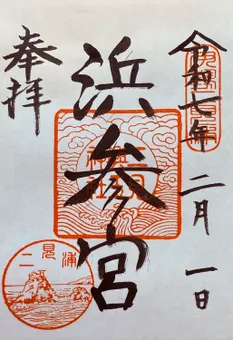 令和七年 二月 一日
浜参宮
奉拝
二見浦